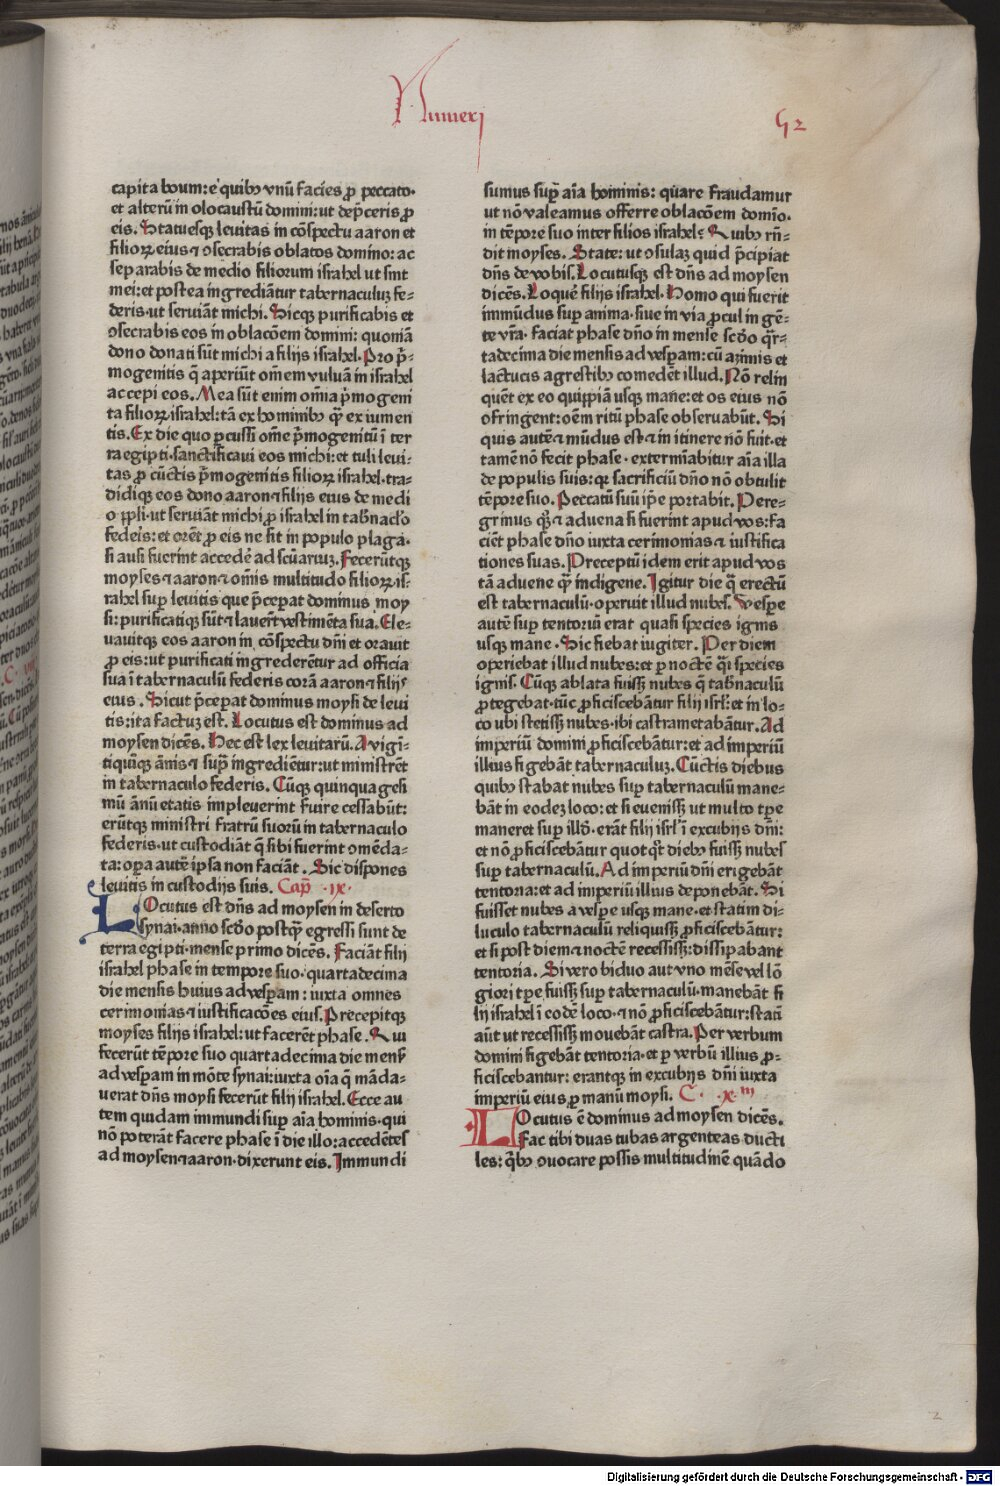 Numeri
52
capita boum: e quibꝫ vnū facies ꝓ peccato·
et alterū in olocaustū domini: ut dep̄ceris ꝓ
eis. Statuesqꝫ leuitas in cōspectu aaron et
filioꝝ eius ⁊ ꝯsecrabis oblatos domino: ac
separabis de medio filiorum israhel ut sint
mei: et postea ingrediātur tabernaculuꝫ fe-
deris· ut seruiāt michi. Sicqꝫ purificabis et
ꝯsecrabis eos in oblacōem domini: quoniā
dono donati sūt michi a filijs israhel. Pro p̄-
mogenitis q̄ aperiūt om̄em vuluā in israhel
accepi eos. Mea sūt enim om̄ia p̄mogeni
ta filioꝝ israhel: tā ex hominibꝫ q̄ꝫ ex iumen
tis. Ex die quo ꝑcussi om̄e p̄mogenitū ī ter
ra egipti· sanctificaui eos michi: et tuli leui-
tas ꝓ cūctis p̄mogenitis filioꝝ israhel· tra-
didiqꝫ eos dono aaron ⁊ filijs eius de medi
o ppli· ut seruiāt michi ꝓ israhel in tab̄nac̄lo
federis: et orēt ꝓ eis ne sit in populo plaga·
si ausi fuerint accedē ad scūariuꝫ. Fecerūtqꝫ
moyses ⁊ aaron ⁊ om̄is multitudo filioꝝ is-
rahel suꝑ leuitis que p̄ceꝑat dominus moy
si: purificatiqꝫ sūt ⁊ lauerūt vestimēta sua. Ele-
uauitqꝫ eos aaron in cōspectu dn̄i et orauit
ꝓ eis: ut purificati ingrederētur ad officia
sua ī tabernaculū federis corā aaron ⁊ filijs
eius. Sicut p̄ceꝑat dominus moysi de leui
tis: ita factuꝫ est. Locutus est dominus ad
moysen dicēs. Hec est lex leuitarū. A vigī-
tiquīqꝫ ānis ⁊ supͣ ingrediētur: ut ministrēt
in tabernaculo federis. Cūqꝫ quinquagesi
mū ānū etatis impleuerint fuire cessabūt:
erūtqꝫ ministri fratrū suorū in tabernaculo
federis· ut custodiāt q̄ sibi fuerint ꝯmēda-
ta: oꝑa autē ipsa non faciāt. Sic dispones
leuitis in custodijs suis. Cap̄ ·ix·
LOcutus est dn̄s ad moysen in deserto
synai· anno scd̄o postqͣ egressi sunt de
terra egipti· mense primo dicēs. Faciāt filij
israhel phase in tempore suo· quartadecima
die mensis huius ad vesꝑam: iuxta omnes
cerimonias ⁊ iustificacōes eius. Precepitqꝫ
moyses filijs israhel: ut facerēt phase. Qui
fecerūt tēpore suo quartadecima die mens̄
ad vesꝑam in mōte synai: iuxta oīa q̄ māda-
uerat dn̄s moysi fecerūt filij israhel. Ecce au
tem quidam immundi suꝑ aīa hominis· qui
nō poterāt facere phase ī die illo: accedētes
ad moysen ⁊ aaron· dixerunt eis. Immundi
sumus suꝑ aīa hominis: quare fraudamur
ut nō valeamus offerre oblacōem domīo·
in tēpore suo inter filios israhel? Quibꝫ rn̄-
dit moyses. State: ut ꝯsulaꝫ quid p̄cipiat
dn̄s de vobis. Locutusqꝫ est dn̄s ad moysen
dicēs. Loquē filijs israhel. Homo qui fuerit
immūdus suꝑ anima· siue in via ꝓcul in gē-
te vr̄a· faciat phase dn̄o in mense scd̄o qͣr-
tadecima die mensis ad vesꝑam: cū azimis et
lactucis agrestibꝫ comedēt illud. Nō relin
quēt ex eo quippiā usqꝫ mane: et os eius nō
ꝯfringent: oēm ritū phase obseruabūt. Si
quis autē ⁊ mūdus est ⁊ in itinere nō fuit· et
tamē nō fecit phase· extermīabitur aīa illa
de populis suis: qꝛ sacrificiū dn̄o nō obtulit
tēpore suo. Peccatū suū ip̄e portabit. Pere-
grinus qͣꝫ ⁊ aduena si fuerint apud vos: fa
ciēt phase dn̄o iuxta cerimonias ⁊ iustifica
tiones suas. Preceptū idem erit apud vos
tā aduene qͣꝫ indigene. Igitur die q̄ erectū
est tabernaculū· operuit illud nubes. Vesꝑe
autē suꝑ tentoriū erat quasi species ignis
usqꝫ mane. Sic fiebat iugiter. Per diem
operiebat illud nubes: et ꝑ noctē qͣsi species
ignis. Cūqꝫ ablata fuissꝫ nubes q̄ tab̄naculū
ꝓtegebat· tūc ꝓficiscebātur filij isrl̄: et in lo-
co ubi stetissꝫ nubes· ibi castrametabātur. Ad
imperiū domini ꝓficiscebātur: et ad imperiū
illius figebāt tabernaculuꝫ. Cūctis diebus
quibꝫ stabat nubes suꝑ tabernaculū mane-
bāt in eodeꝫ loco: et si euenissꝫ ut multo tꝑe
maneret suꝑ illd̄· erāt filij isrl̄ ī excubijs dn̄i:
et nō ꝓficiscebātur quot qͦt diebꝫ fuissꝫ nubes
suꝑ tabernaculū. Ad imperiū dn̄i erigebāt
tentoria: et ad imperiū illius deponebāt. Si
fuisset nubes a vesꝑe usqꝫ mane· et statim di-
luculo tabernaculū reliquissꝫ ꝓficiscebātur:
et si post diem ⁊ noctē recessissꝫ: dissipabant
tentoria. Si vero biduo aut vno mēse vel lō
giori tꝑe fuissꝫ suꝑ tabernaculū· manebāt fi
lij israhel ī eodē loco· ⁊ nō ꝓficiscebātur: statī
aūt ut recessissꝫ mouebāt castra. Per verbum
domini figebāt tentoria· et ꝑ verbū illius ꝓ-
ficiscebantur: erantqꝫ in excubijs dn̄i iuxta
imperiū eius ꝑ manū moysi. C· ·x·m
LOcutus ē dominus ad moysen dicēs.
Fac tibi duas tubas argenteas ducti
les: qͥbꝫ ꝯuocare possis multitudinē quādo
2
Digitalisierung gefördert durch die Deutsche Forschungsgemeinschaft - DFG